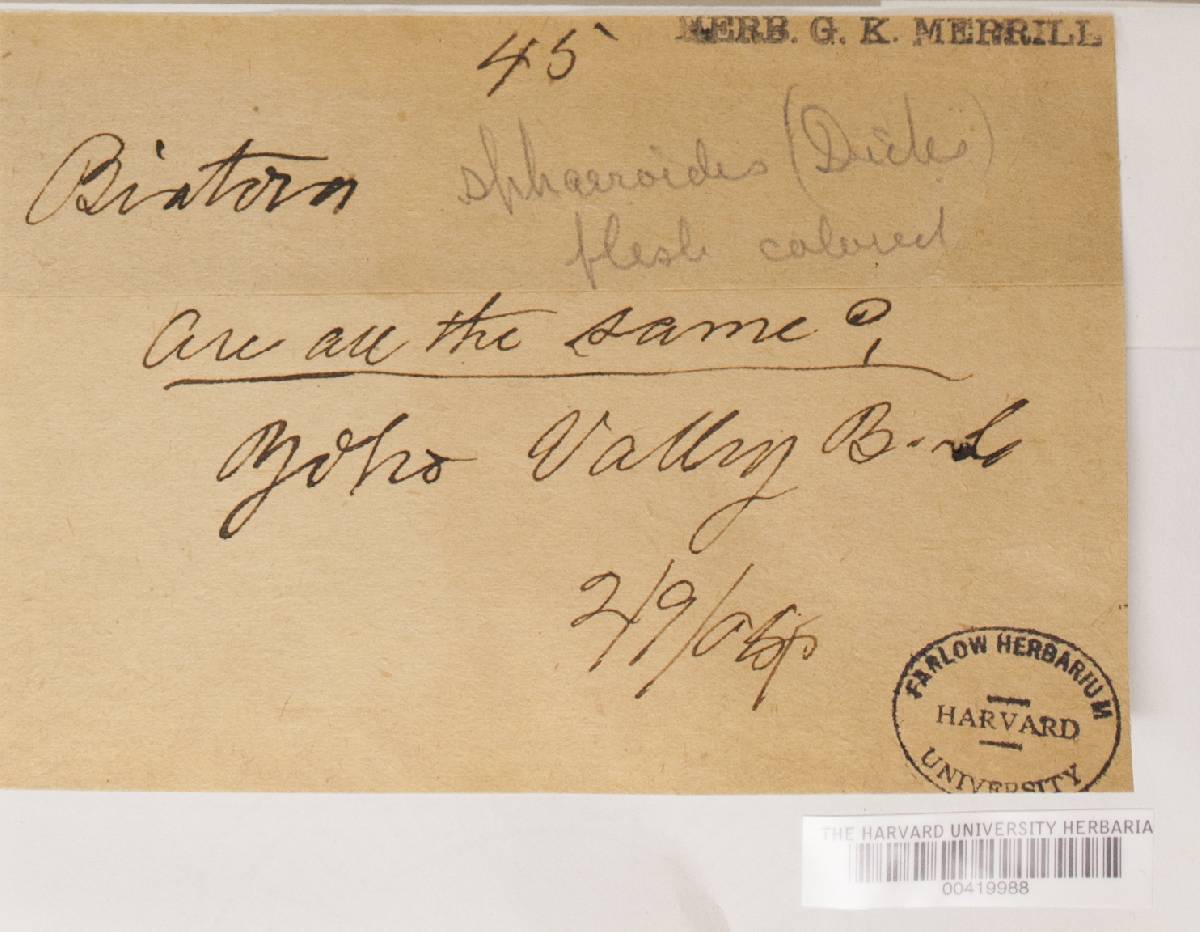 HERB. G. K. MERRILL
45
Biatora sphaeroides (Dicks)
flesh colored
are all the same?
Yoho Valley B.C
2/9/04
FARLOW HERBARIUM
HARVARD
UNIVERSITY
THE HARVARD UNIVERSITY HERBARIA
00419988